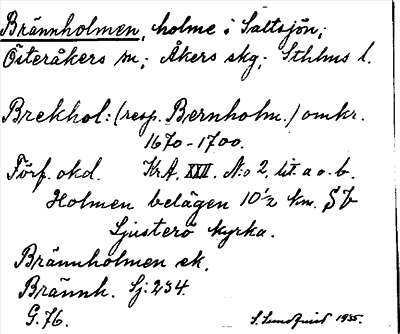 Brännholmen, holme i Saltsjön;
Österåkers sn; Åkers skg; Sthlms l.
Brekhol: (resp. Bernholm.) omkr.
1670-1700.
Förf. okd. Kr.A. XXII. No 2, lit. a o. b.
Holmen belägen 10½ km. SV
Ljusterö kyrka.
Brännholmen ek.
Brännh. Sj: 234.
G. 76. S. Lundquist 1935.